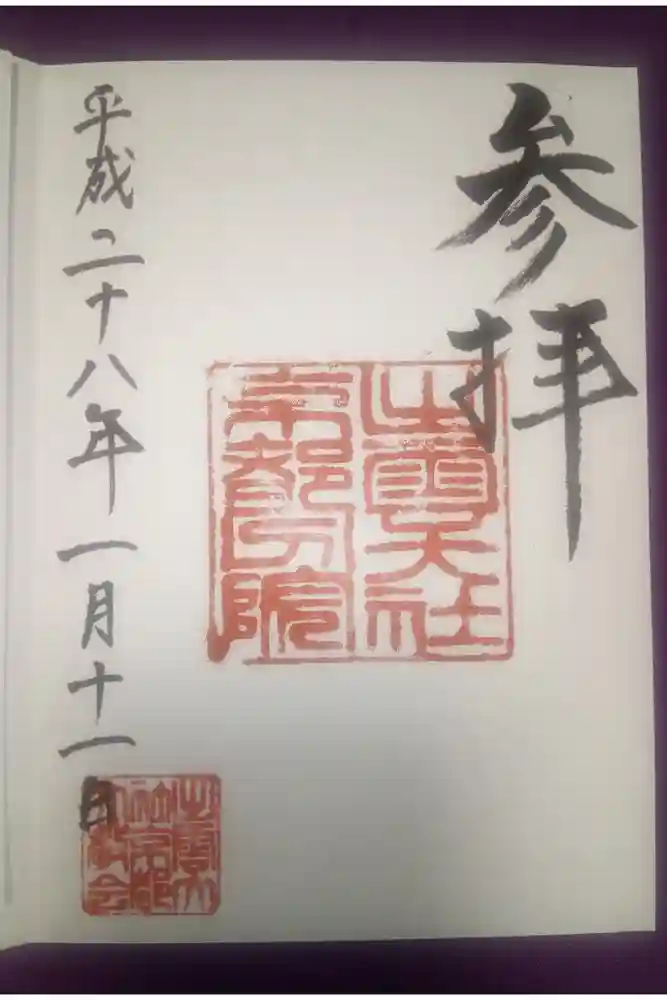 参拝
出雲大社
京都分院
平成二十八年一月十一日